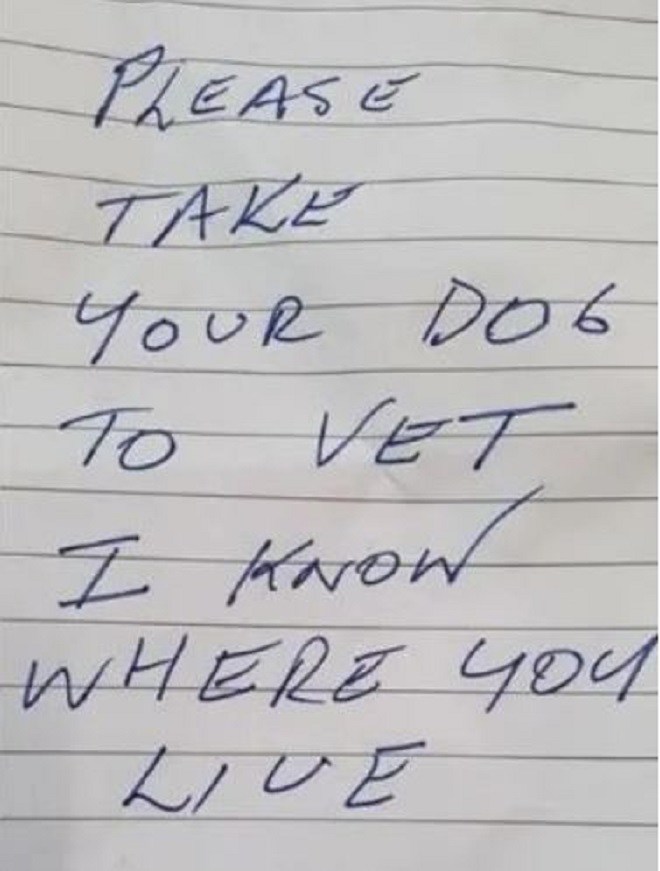 PLEASE
TAKE
YOUR DOG
TO VET
I KNOW
WHERE YOU
LIVE